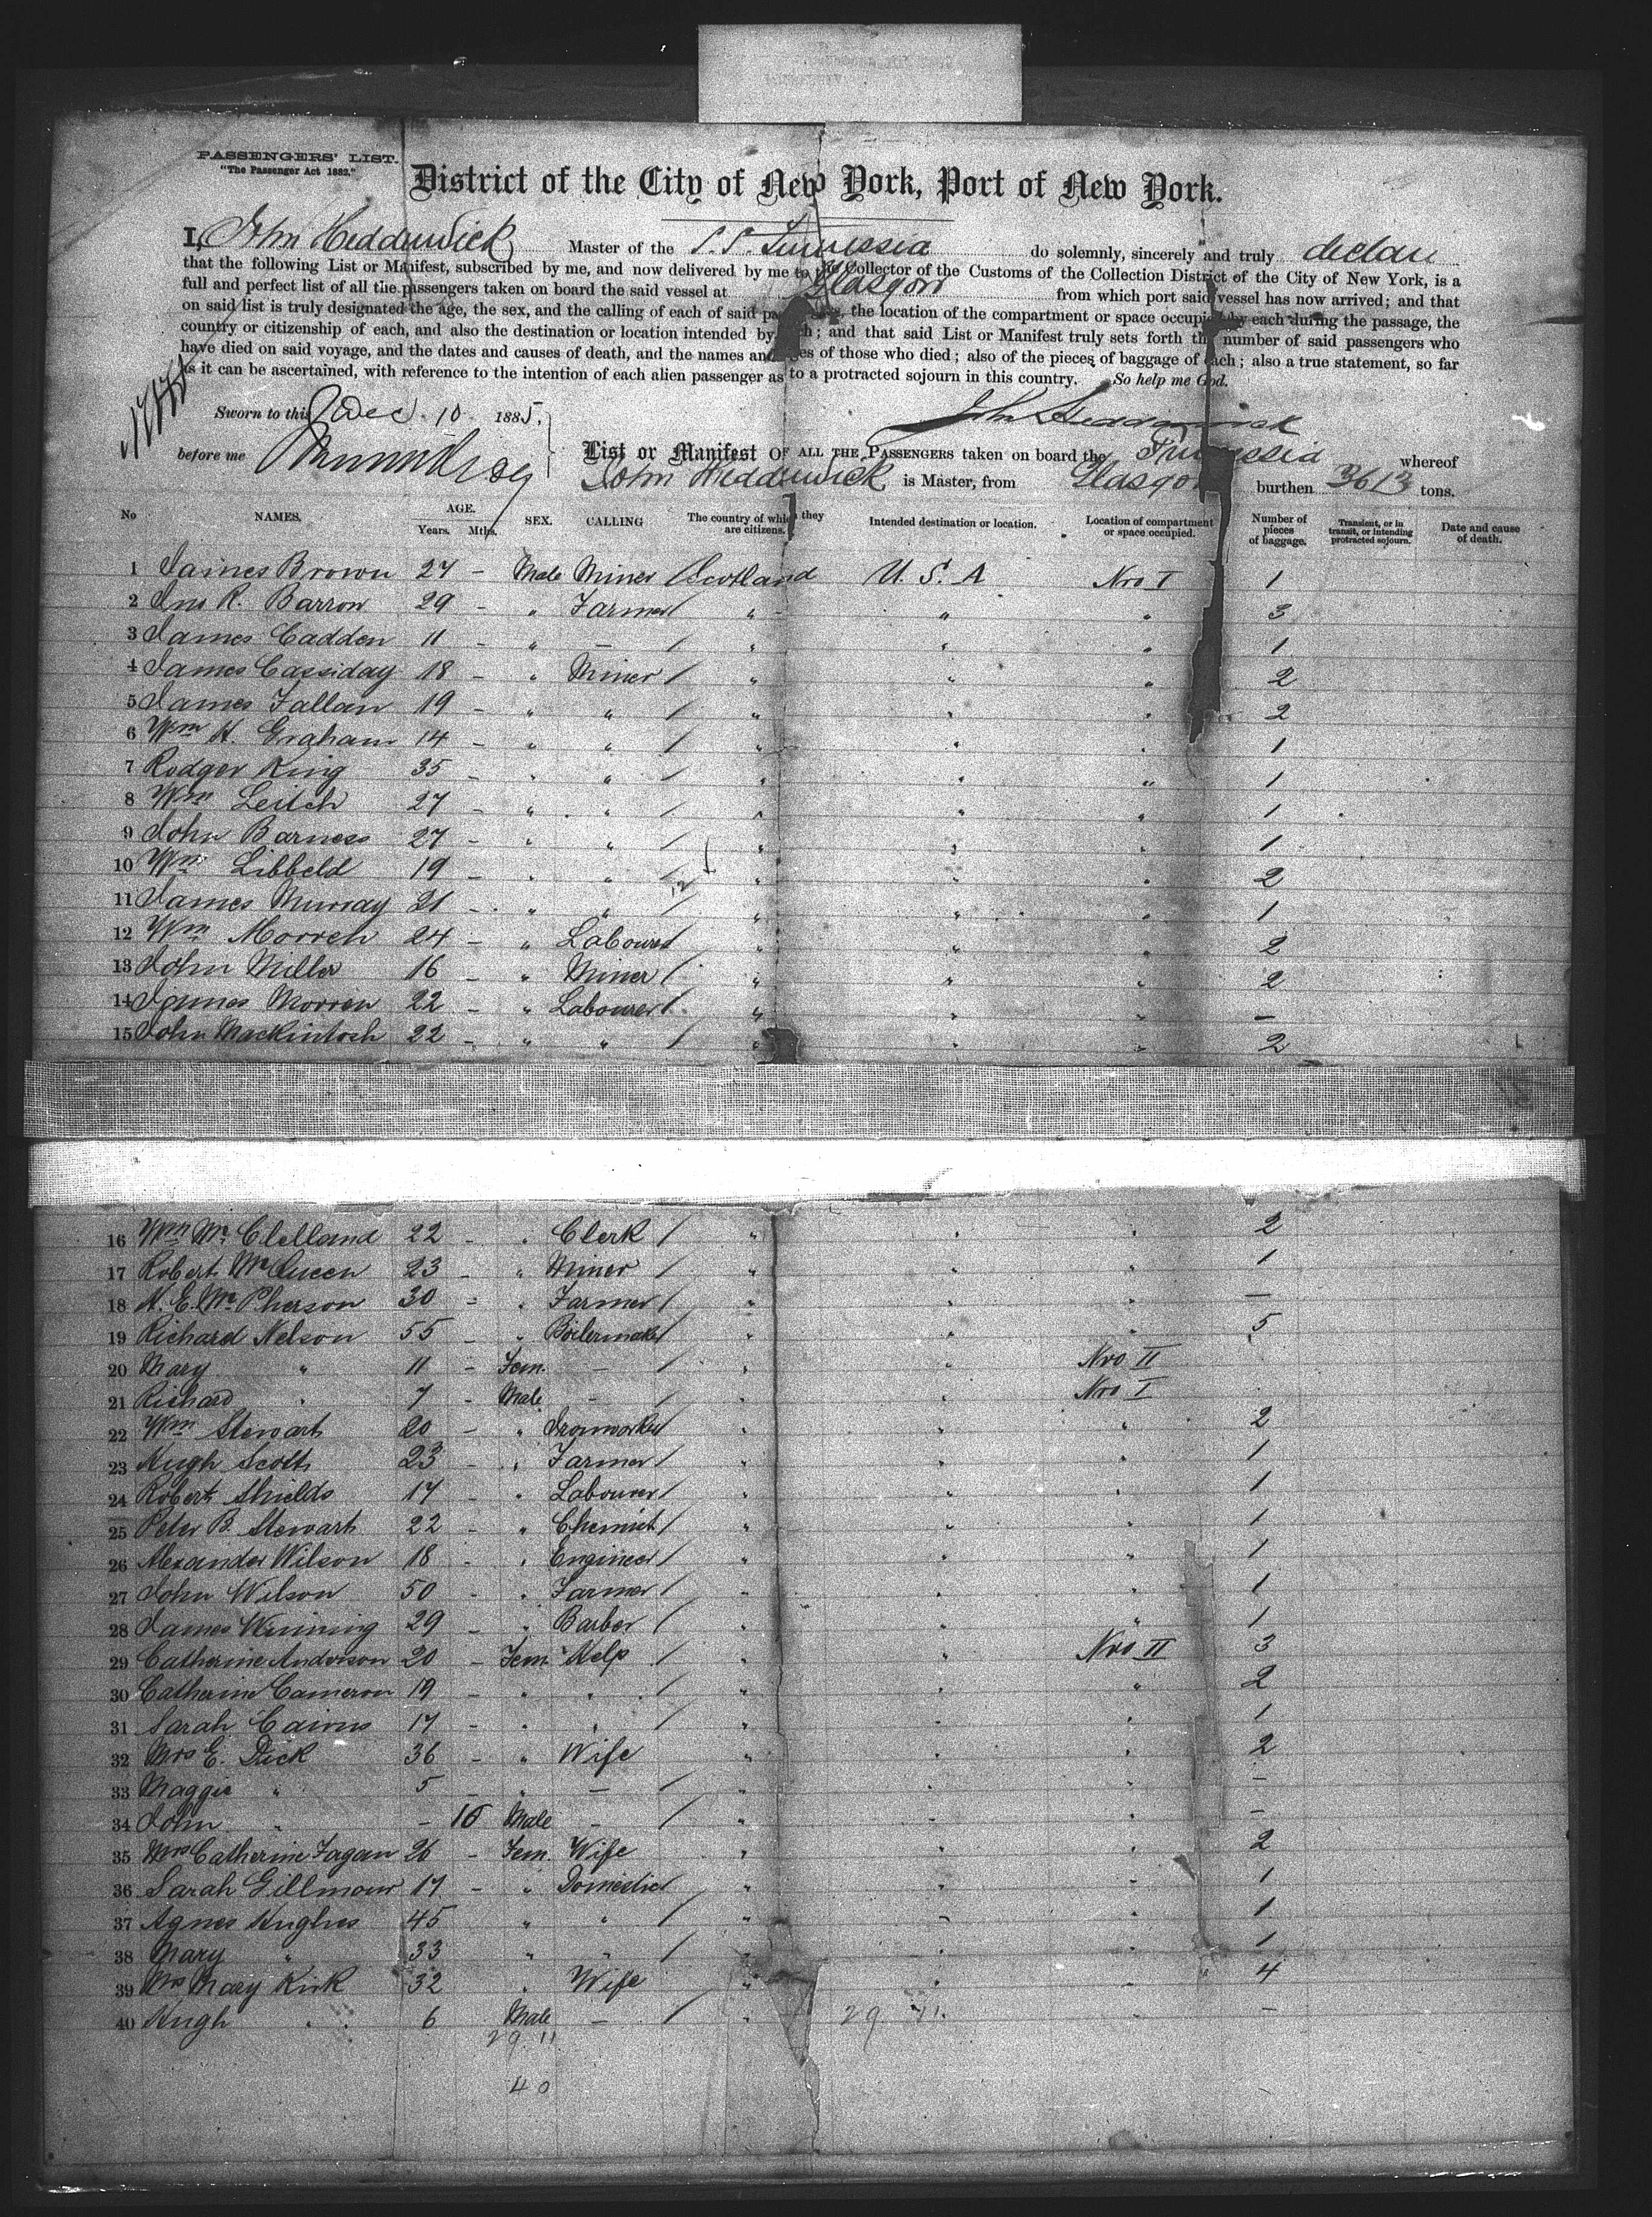 PASSENGERS' LIST.
"The Passenger Act 1882."
District of the City of New York, Port of New York.
I, John Hedderwick Master of the S.S. Furnessia do solemnly, sincerely and truly declare
that the following List or Manifest, subscribed by me, and now delivered by me to the Collector of the Customs of the Collection District of the City of New York, is a
full and perfect list of all the passengers taken on board the said vessel at Glasgow from which port said vessel has now arrived; and that
on said list is truly designated the age, the sex, and the calling of each of said passengers, the location of the compartment or space occupied by each during the passage, the
country or citizenship of each, and also the destination or location intended by each; and that said List or Manifest truly sets forth the number of said passengers who
have died on said voyage, and the dates and causes of death, and the names and ages of those who died; also of the pieces of baggage of each; also a true statement, so far
as it can be ascertained, with reference to the intention of each alien passenger as to a protracted sojourn in this country. So help me God.
Sworn to this Dec. 10 1885, John Hedderwick
before me
List or Manifest OF ALL THE PASSENGERS taken on board the Furnessia whereof
John Hedderwick is Master, from Glasgow burthen 3613 tons.
No NAMES. AGE. Years. Mths. SEX. CALLING The country of which they are citizens. Intended destination or location. Location of compartment or space occupied. Number of pieces of baggage. Transient, or in transit, or intending protracted sojourn. Date and cause of death.
1 James Brown 27 - Male Miner / Scotland U.S.A Nro I 1
2 Jno R. Barron 29 - " Farmer / " " " 3
3 James Cadden 11 - " - / " " " 1
4 James Cassiday 18 - " Miner / " " " 2
5 James Fallan 19 - " " / " " " 2
6 Wm H. Graham 14 - " " / " " " 1
7 Rodger King 35 - " " / " " " 1
8 Wm Leitch 27 - " " / " " " 1
9 John Barness 27 - " " / " " " 1
10 Wm Libbeld 19 - " " / " " " 2
11 James Murray 21 - " " / " " " 1
12 Wm Morren 24 - " Labourer / " " " 2
13 John Miller 16 - " Miner / " " " 2
14 James Morrin 22 - " Labourer / " " " -
15 John Mackintosh 22 - " " / " " " 2
16 Wm Mc Clelland 22 - " Clerk / " " " 2
17 Robert McQueen 23 - " Miner / " " " 1
18 A. E. Mc Pherson 30 - " Farmer / " " " -
19 Richard Nelson 55 - " Boilermaker / " " " 5
20 Mary " 11 - Fem. - / " " Nro II
21 Richard " 7 - Male - / " " Nro I
22 Wm Stewart 20 - " Ironworker / " " " 2
23 Hugh Scott 23 - " Farmer / " " " 1
24 Robert Shields 17 - " Labourer / " " " 1
25 Peter B. Stewart 22 - " Chemist / " " " 1
26 Alexander Wilson 18 - " Engineer / " " " 1
27 John Wilson 50 - " Farmer / " " " 1
28 James Winning 29 - " Barber / " " " 1
29 Catherine Anderson 20 - Fem Help / " " Nro II 3
30 Catherine Cameron 19 - " " / " " " 2
31 Sarah Cairns 17 - " " / " " " 1
32 Mrs E. Dick 36 - " Wife " " " 2
33 Maggie " 5 - " - / " " " -
34 John " - 10 Male - / " " " -
35 Mrs Catherine Fagan 26 - Fem. Wife " " " 2
36 Sarah Gillmour 17 - " Domestic / " " " 1
37 Agnes Hughes 45 " " / " " " 1
38 Mary " 33 " " / " " " 1
39 Mrs Mary Kirk 32 " Wife " " " 4
40 Hugh " 6 Male - / " 29 11. " -
29 11
40